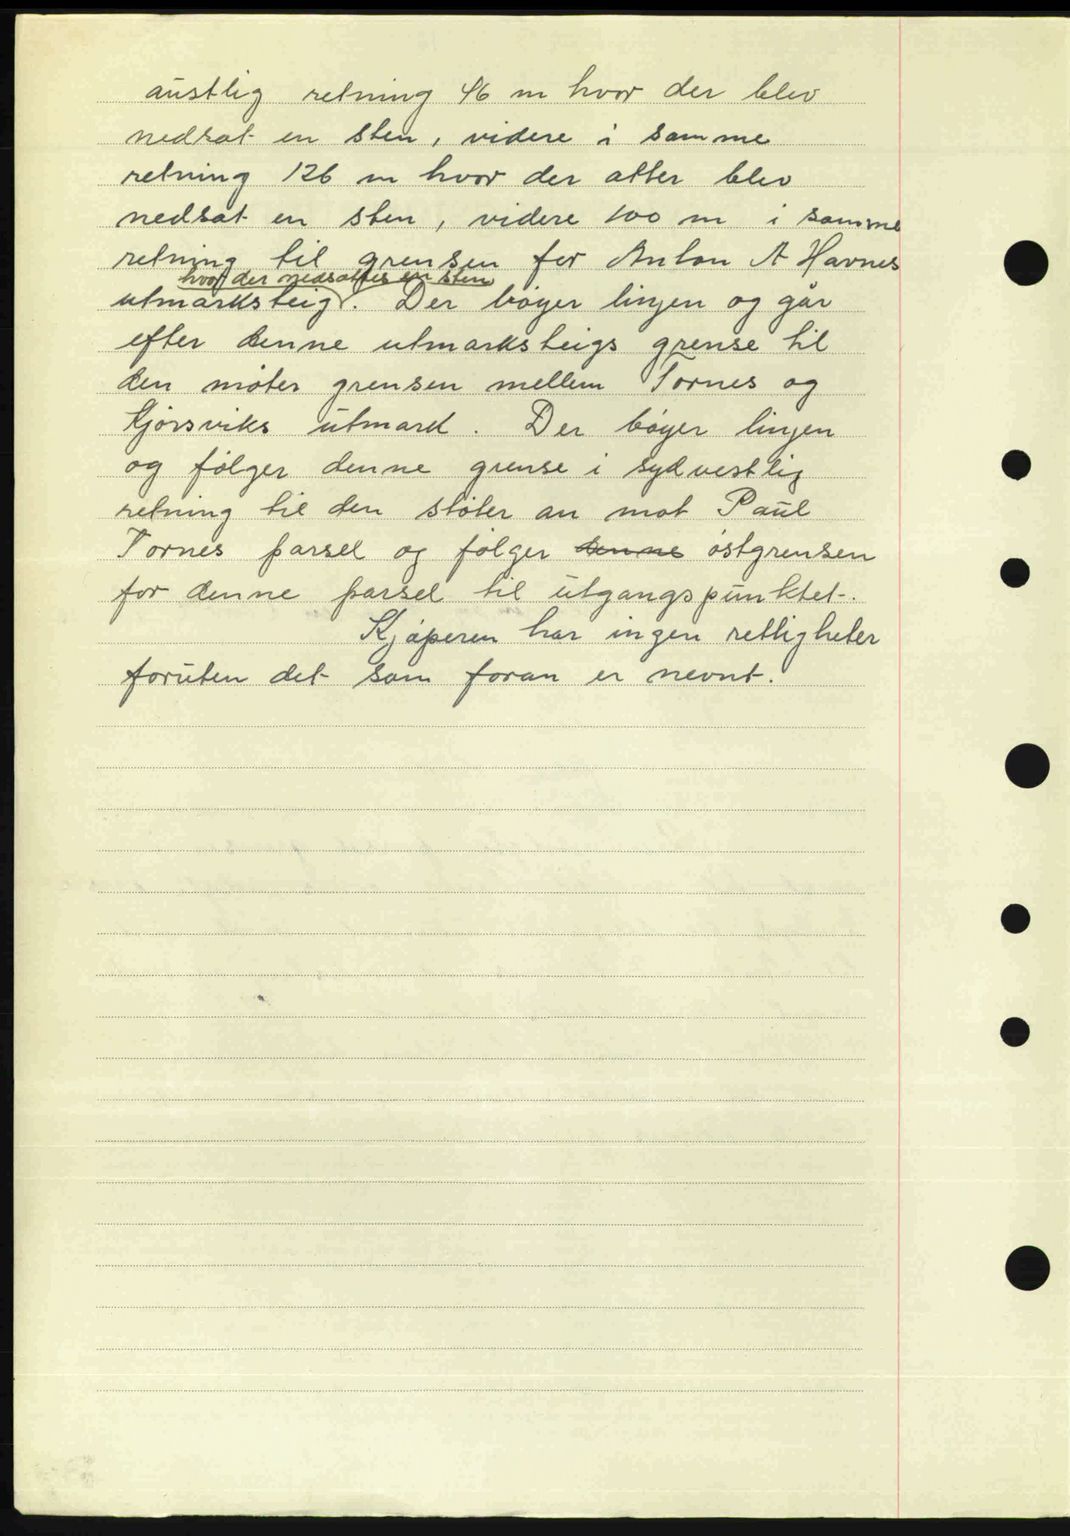 austlig retning 46 m hvor der blev
nedsat en sten, videre i samme
retning 126 m hvor der atter blev
nedsat en sten, videre 100 m i samme
retning til grensen for Anton A Havnes
hvor der nedsattes en sten
utmarksteig. Der bøyer linjen og går
efter denne utmarksteigs grense til
den møter grensen mellem Tornes og
Kjørsviks utmark. Der bøyer linjen
og følger denne grense i sydvestlig
retning til den støter an mot Paul
Tornes parsel og følger denne østgrensen
for denne parsel til utgangspunktet.
Kjøperen har ingen rettigheter
foruten det som foran er nevnt.